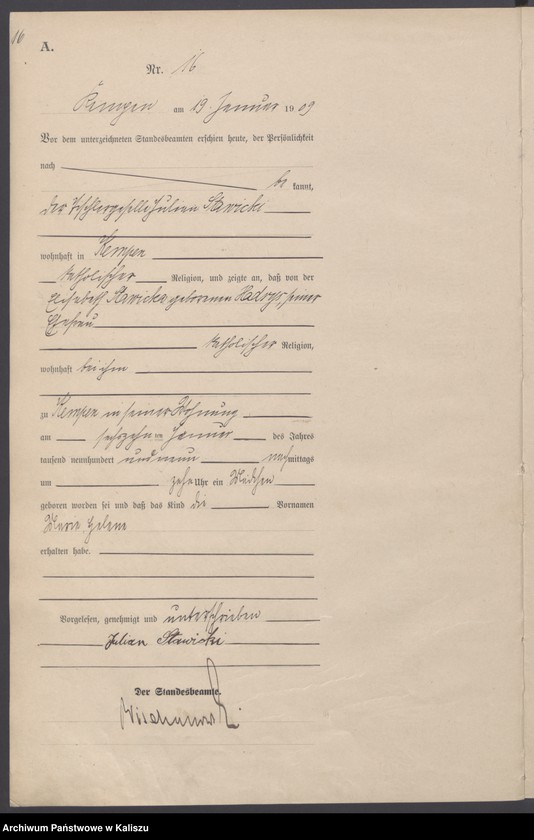 16
A.
Nr. 16
Kempen am 19. Januar 1909
Vor dem unterzeichneten Standesbeamten erschien heute, der Persönlichkeit
nach be kannt,
der Tischlergeselle Julian Slawicki
wohnhaft in Kempen
katholischer Religion, und zeigte an, daß von der
Elisabeth Slawicka geborenen seiner
Ehefrau
katholischer Religion,
wohnhaft bei ihm
zu Kempen in seiner Wohnung
am sechzehnten Januar des Jahres
tausend neunhundert und neun nachmittags
um zehn Uhr ein Mädchen
geboren worden sei und daß das Kind die Vornamen
Marie Helene
erhalten habe.
Vorgelesen, genehmigt und unterschrieben
Julian Slawicki
Der Standesbeamte.
Archiwum Państwowe w Kaliszu